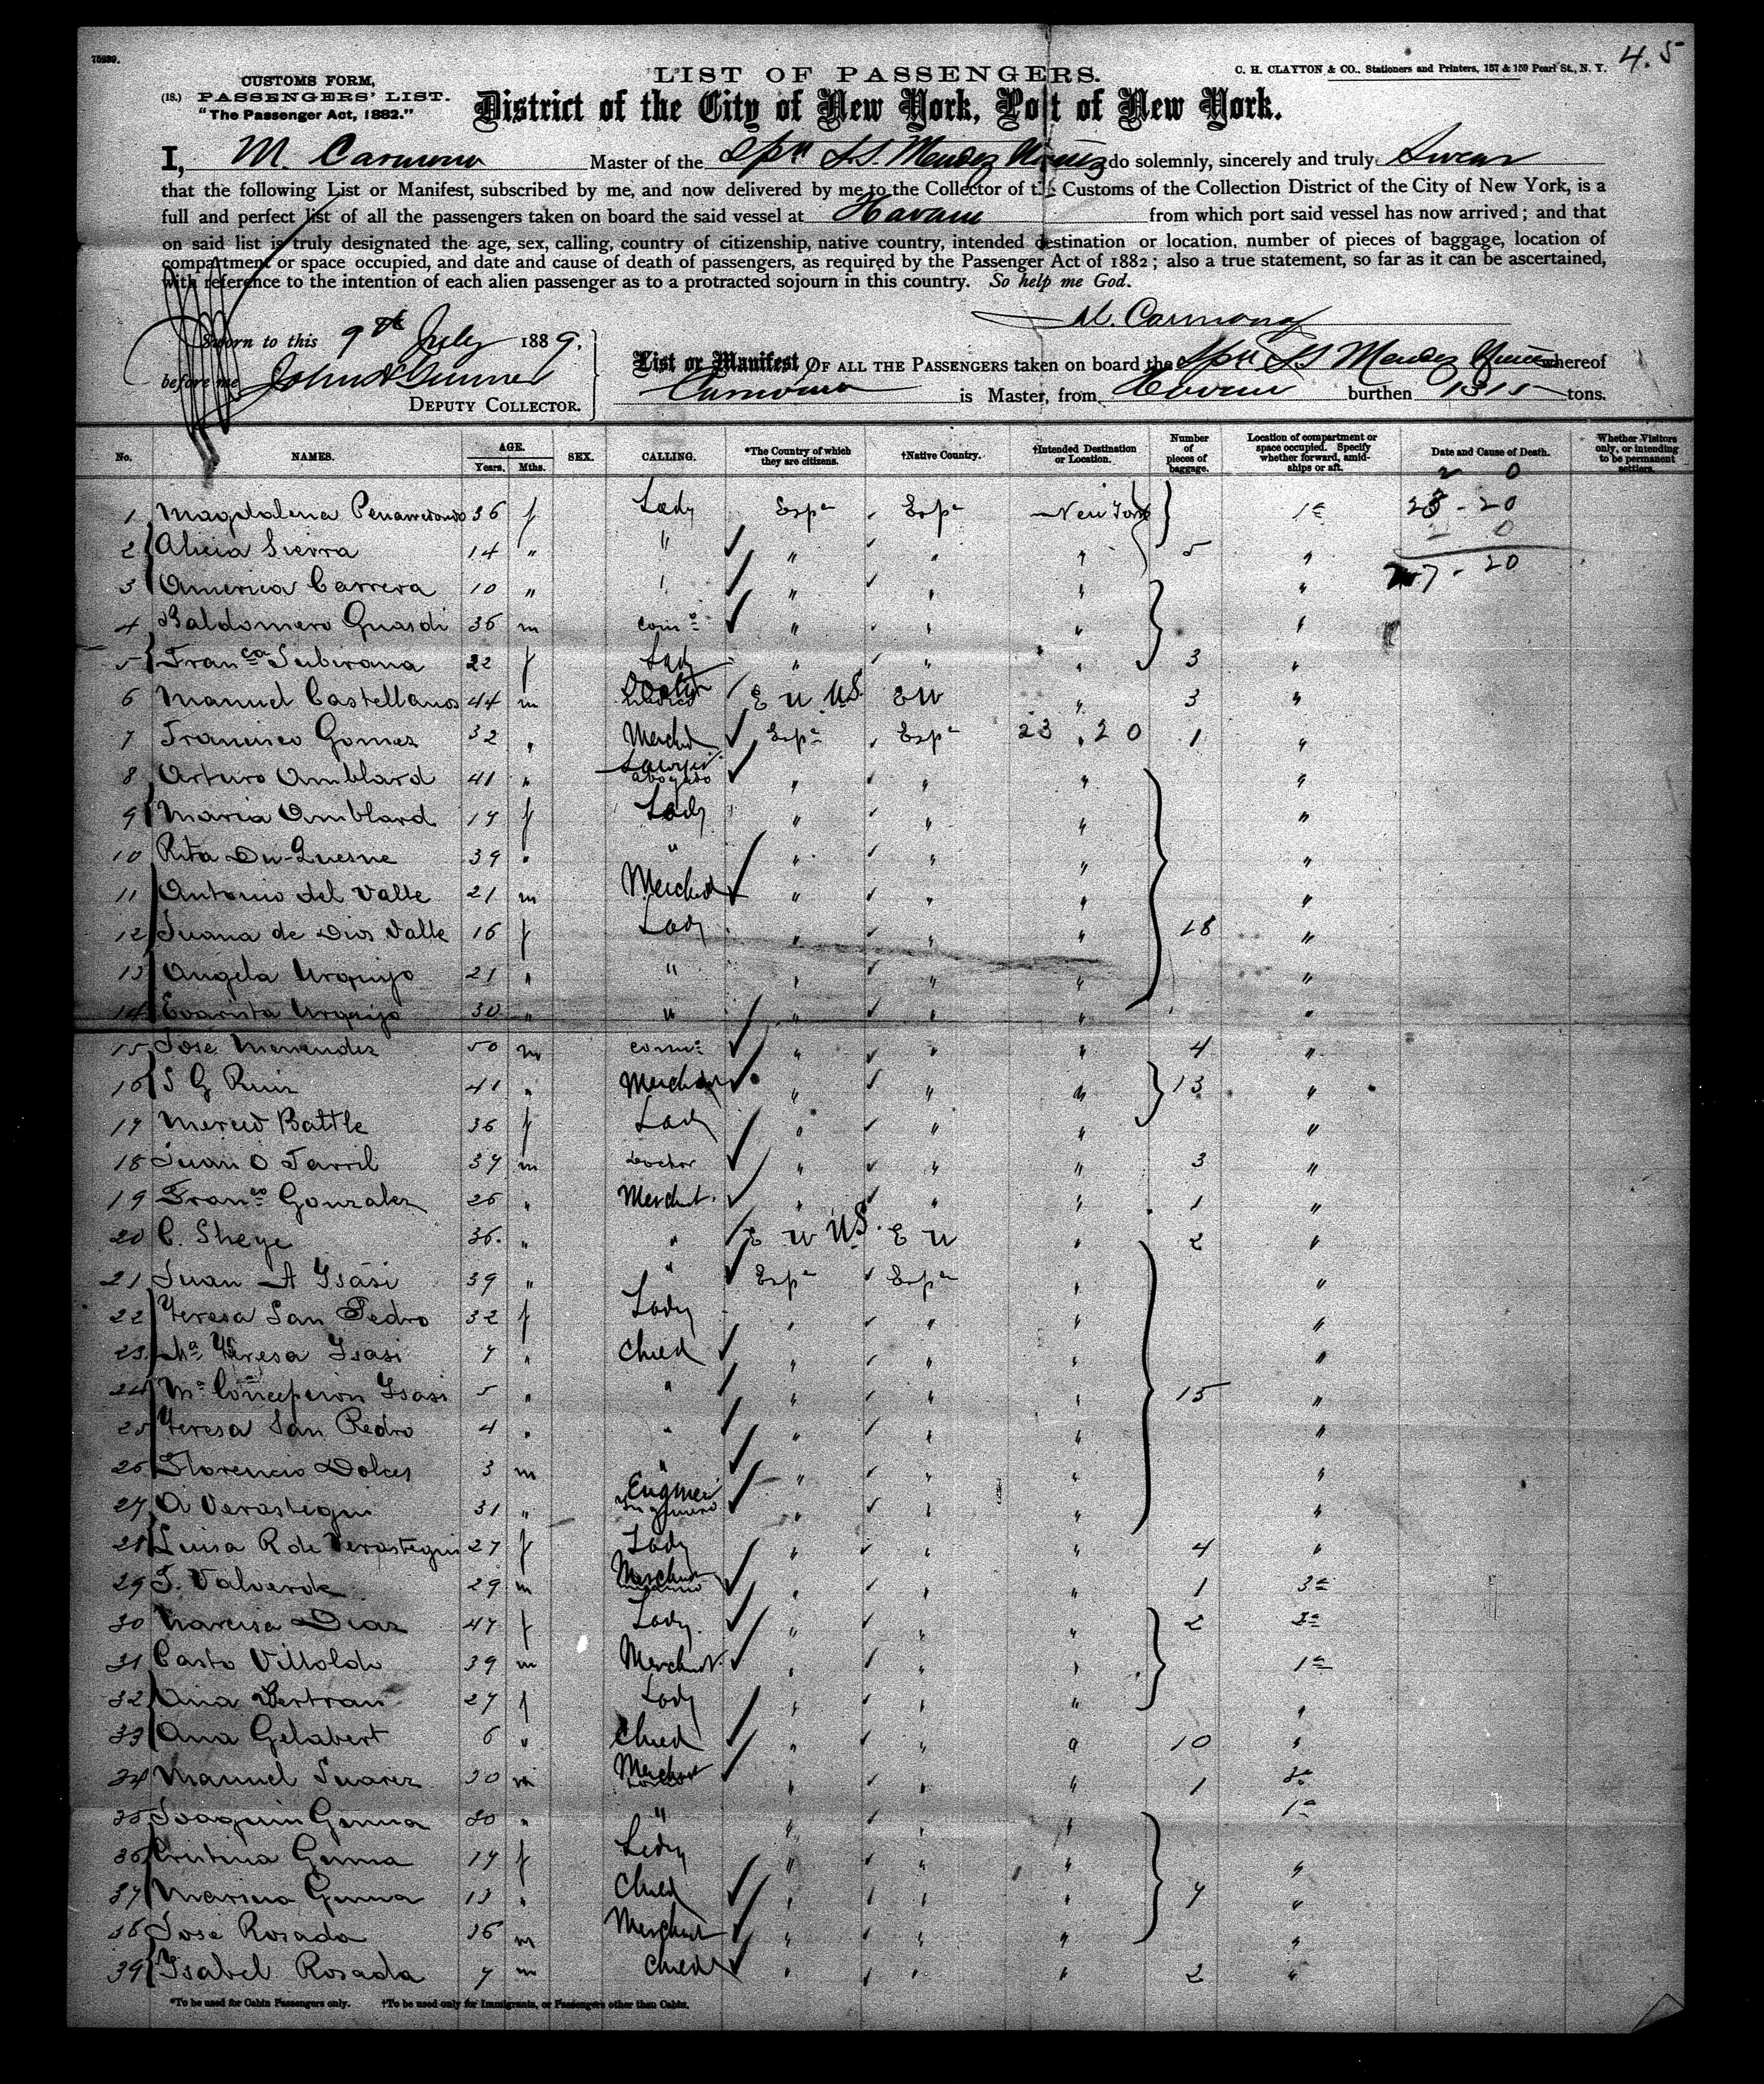 75239.
4.5
CUSTOMS FORM,
(18.) PASSENGERS' LIST.
"The Passenger Act, 1882."
LIST OF PASSENGERS.
C. H. CLAYTON & CO., Stationers and Printers, 157 & 159 Pearl St., N. Y.
District of the City of New York, Port of New York.
I, M. Carmona Master of the Spn SS. Mendez Nunez do solemnly, sincerely and truly Swear
that the following List or Manifest, subscribed by me, and now delivered by me to the Collector of the Customs of the Collection District of the City of New York, is a
full and perfect list of all the passengers taken on board the said vessel at Havana from which port said vessel has now arrived; and that
on said list is truly designated the age, sex, calling, country of citizenship, native country, intended destination or location, number of pieces of baggage, location of
compartment or space occupied, and date and cause of death of passengers, as required by the Passenger Act of 1882; also a true statement, so far as it can be ascertained,
with reference to the intention of each alien passenger as to a protracted sojourn in this country. So help me God.
M. Carmona
Sworn to this 9th July 1889.
before me
DEPUTY COLLECTOR.
List or Manifest OF ALL THE PASSENGERS taken on board the Spn SS Mendez Nunez whereof
Carmona is Master, from Havana burthen 1315 tons.
No. NAMES. AGE. Years. Mths. SEX. CALLING. *The Country of which they are citizens. †Native Country. †Intended Destination or Location. Number of pieces of baggage. Location of compartment or space occupied. Specify whether forward, amidships or aft. Date and Cause of Death. Whether Visitors only, or intending to be permanent settlers.
1 Magdalena 36 f Lady Espa Espa New York 1a 20
2 Alicia Sierra 14 " " " " " 5 "
3 America Carrera 10 " " " " "
4 Baldomero Guasdi 36 m como " " " "
5 Franca Subirana 22 f Lady " " " 3 "
6 Manuel Castellanos 44 m Doctor E U US. E U " 3 "
7 Francisco Gomez 32 " Merchd Espa Espa 23 . 20 1 "
8 Arturo Amblard 41 " Lawyer abogado " " " "
9 Maria Amblard 17 f Lady " " " "
10 Rita Du-Quesne 39 " " " " " "
11 Antonio del Valle 21 m Merchd " " " "
12 Juana de Dios Valle 16 f Lady " " " 18 "
13 Angela Urquijo 21 " " " " " "
14 Evarista Urquijo 30 " " " " " "
15 Jose Menendez 50 m como " " " 4 "
16 S G Ruiz 41 " Merchan " " " 13 "
17 Merced Battle 36 f Lady " " " "
18 Juan O Tarril 37 m Doctor " " " 3 "
19 Franco Gonzalez 26 " Mercht. " " " 1 "
20 C. Sheye 36. " " E U US. E U " 2 "
21 Juan A Ysasi 39 " " Espa Espa " "
22 Teresa San Pedro 32 f Lady " " " "
23 Ma. Teresa Ysasi 7 " Chied " " " "
24 Ma Concepcion Ysasi 5 " " " " " 15 "
25 Teresa San Pedro 4 " " " " " "
26 Florencio Dolces 3 m " " " " "
27 A Verastegui 31 " Engineer Yngeniero " " " "
28 Luisa R de Verastegui 27 f Lady " " " 4 "
29 J. Valverde 29 m Merchan " " " 1 3a
30 Narcisa Diaz 47 f Lady " " " 2 3a
31 Casto Villoldo 39 m Merchant " " " 1a
32 Ana Bertran 27 f Lady " " " "
33 Ana Gelabert 6 " Chied " " " 10 "
34 Manuel Suarez 30 m Merchant " " " 1 3a
35 Joaquin Genna 30 " " " " " 1a
36 Cristina Genna 17 f Lady " " " "
37 Genna 13 " Chied " " " 7 "
38 Jose Rosado 36 m Merchant " " " "
39 Ysabel Rosada 7 m Chied " " " 2 "
*To be used for Cabin Passengers only. †To be used only for Immigrants, or Passengers other than Cabin.